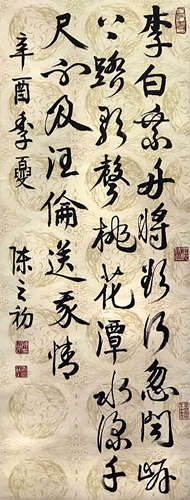 李白乘舟將欲行忽聞岸
上踏歌聲桃花潭水深千
尺不及汪倫送我情
辛酉季夏 陳之初